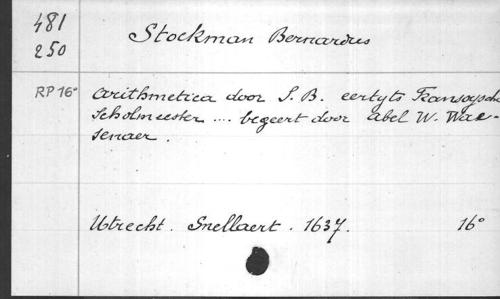 481
250
Stockman Bernardus
RP 16°
Arithmetica door S. B. eertyts Fransoysch
Scholmeester .... begeert door Abel W. Wae-
senaer.
Utrecht. Snellaert. 1637. 16°